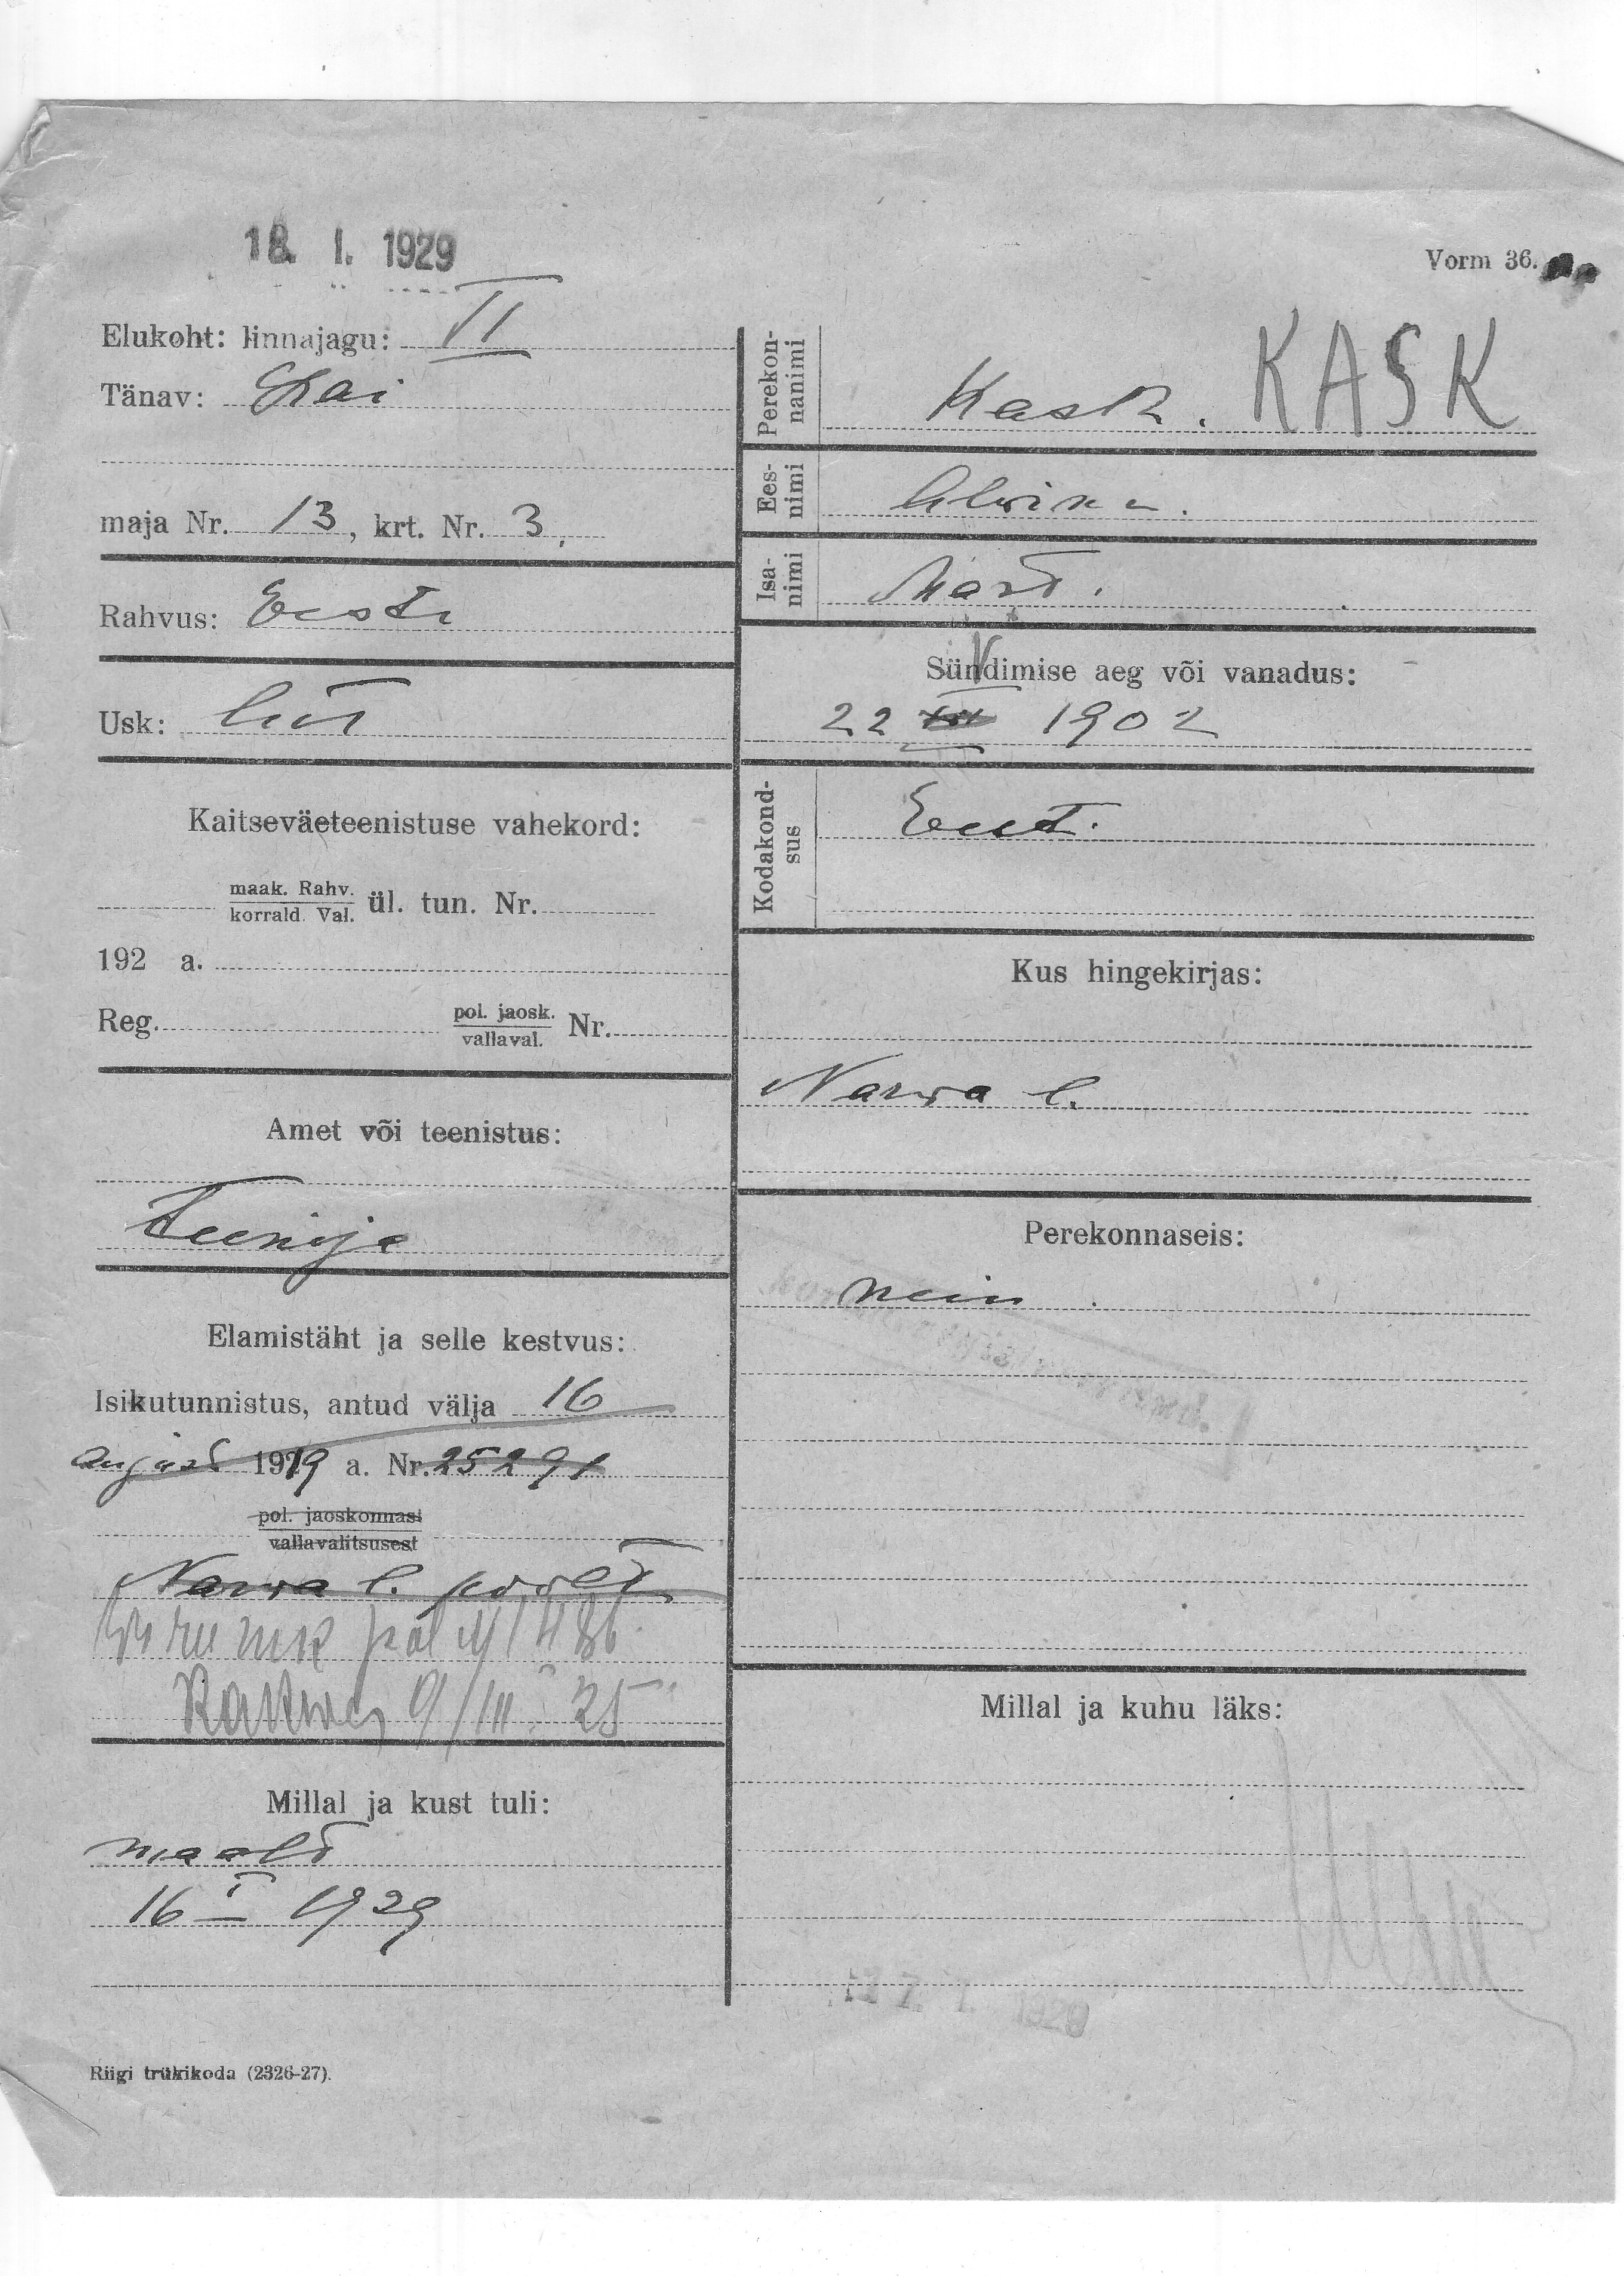 18. I. 1929
Vorm 36.
Elukoht: linnajagu: VI
Tänav: Kai
maja Nr. 13, krt. Nr. 3.
Rahvus: Eesti
Usk:
Kaitseväeteenistuse vahekord:
maak. Rahv.
korrald. Val. ül. tun. Nr.
192 a.
Reg. pol. jaosk.
vallaval. Nr.
Amet või teenistus:
Teenija
Elamistäht ja selle kestvus:
Isikutunnistus, antud välja 16
august 1919 a. Nr. 25291
pol. jaoskonnast
vallavalitsusest
Narva l. poolt
Viru mk pol
Rakveres 9/III 25
Millal ja kust tuli:
maalt
16 I 1929
Riigi trükikoda (2326-27).
Perekon-
nanimi
Kask. KASK
Ees-
nimi
Alvine.
Isa-
nimi
Mart.
Sündimise aeg või vanadus:
22 V 1902
Kodakond-
sus
Eest.
Kus hingekirjas:
Narva l.
Perekonnaseis:
nein.
Millal ja kuhu läks:
17. I. 1929